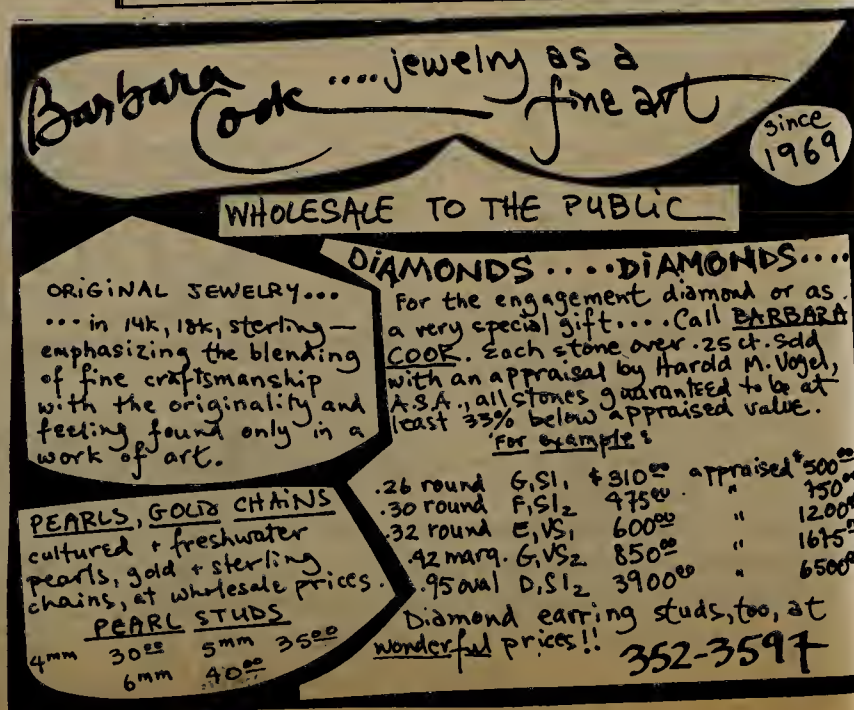 Barbara Cook ....jewelry as a fine art
since
1969
WHOLESALE TO THE PUBLIC
ORIGINAL JEWELRY...
...in 14k, 18k, sterling—
emphasizing the blending
of fine craftsmanship
with the originality and
feeling found only in a
work of art.
PEARLS, GOLD CHAINS
cultured + freshwater
pearls, gold + sterling
chains, at wholesale prices.
PEARL STUDS
4mm 30.00 5mm 35.00
6mm 40.00
DIAMONDS ....DIAMONDS....
For the engagement diamond or as
a very special gift....Call BARBARA
COOK. Each stone over .25 ct. sold
with an appraisal by Harold M. Vogel,
A.S.A., all stones guaranteed to be at
least 33% below appraised value.
For example:
.26 round G, SI1 $310.00 appraised $500.00
.30 round F, SI2 475.00 " 750.00
.32 round E, VS1 600.00 " 1200.00
.42 marq. G, VS2 850.00 " 1675.00
.95 oval D, SI2 3900.00 " 6500.00
Diamond earring studs, too, at
wonderful prices!! 352-3597